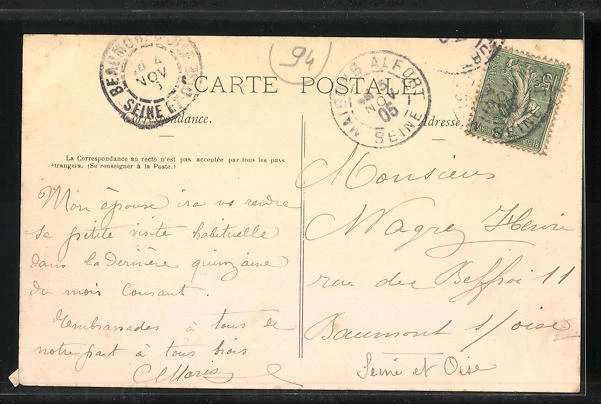 94
CARTE POSTALE
Correspondance.
Adresse.
La Correspondance au recto n'est pas acceptée par tous les pays
étrangers. (Se renseigner à la Poste.)
MAISONS ALFORT
05
SEINE
BEAUMONT
4
NOV
SEINE ET OISE
15
Mon épouse ira vs rendre
sa petite visite habituelle
dans la dernière quinzaine
du mois courant.
Zembrassades à tous de
notre part à tous trois
Monsieur
Wagrez Henri
rue du Beffroi 11
Beaumont s/oise
Seine et Oise